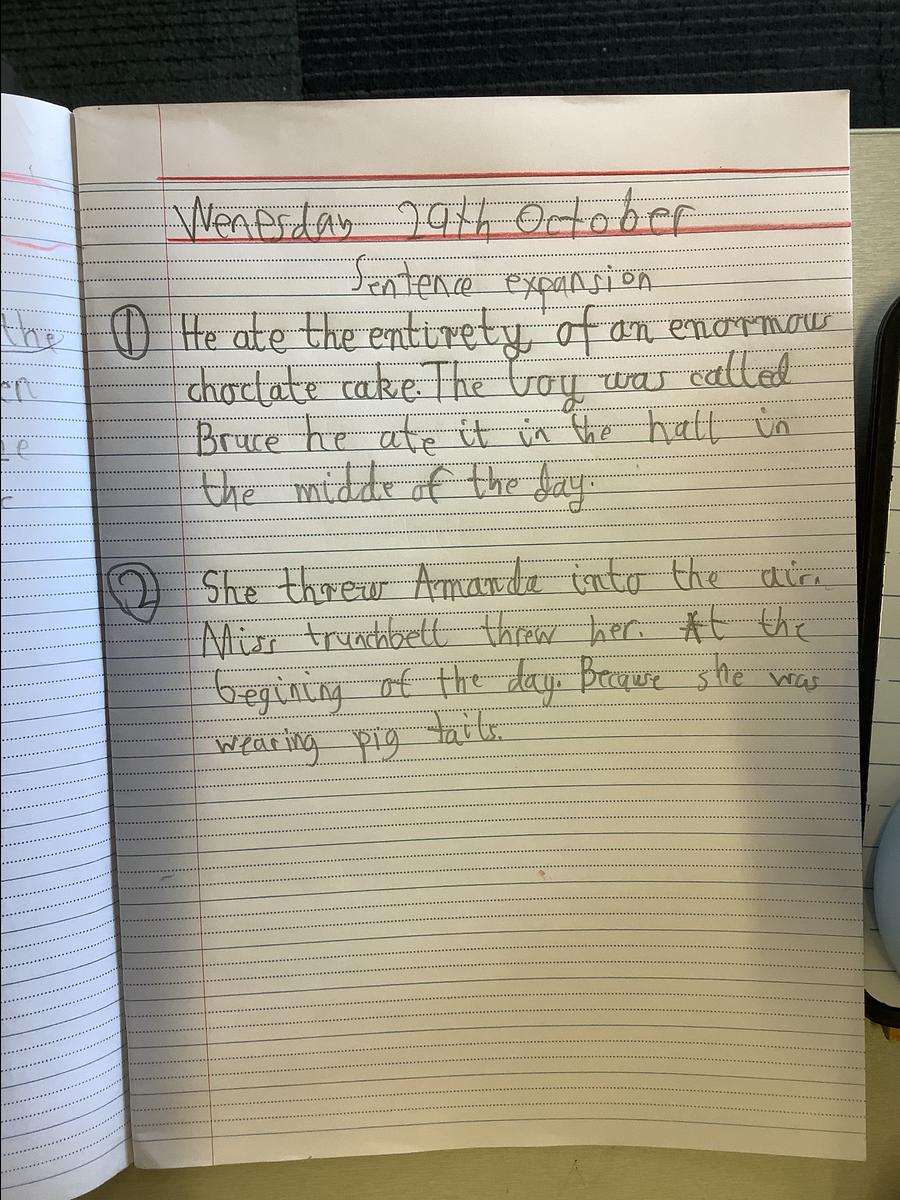 Wenesday 29th October
Sentence expansion
① He ate the entirety of an enormous
choclate cake. The boy was called
Bruce he ate it in the hall in
the midde of the day.
② She threw Amanda into the air.
Miss trunchbell threw her. At the
begining of the day. Because she was
wearing pig tails.
the
en